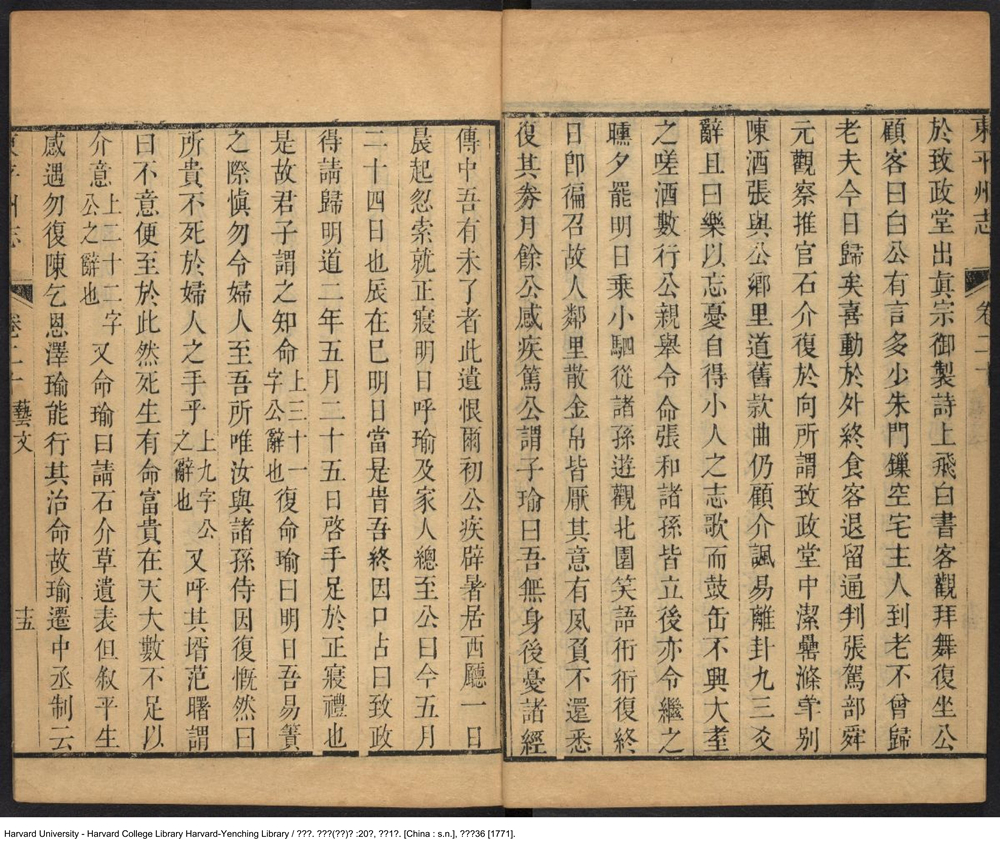 東平州志
卷二十
於致政堂出真宗御製詩上飛白書客觀拜舞復坐公
顧客曰白公有言多少朱門鏁空宅主人到老不曾歸
老夫今日歸矣喜動於外終食客退留通判張駕部舜
元觀察推官石介復於向所謂致政堂中潔罍滌斝别
陳酒張與公鄉里道舊款曲仍顧介諷易離卦九三爻
辭且曰樂以忘憂自得小人之志歌而鼓缶不興大耋
之嗟酒數行公親舉令命張和諸孫皆立後亦令繼之
曛夕罷明日乗小駟從諸孫遊觀北園笑語衎衎復終
日卽徧召故人鄰里散金帛皆厭其意有夙負不還悉
復其券月餘公感疾篤公謂子瑜曰吾無身後憂諸經
傳中吾有未了者此遺恨爾初公疾辟暑居西廳一日
晨起忽索就正寢明日呼瑜及家人總至公曰今五月
二十四日也辰在巳明日當是時吾終因口占曰致政
得請歸明道二年五月二十五日啓手足於正寢禮也
是故君子謂之知命上三十一字公辭也復命瑜曰明日吾易簀
之際愼勿令婦人至吾所唯汝與諸孫侍因復慨然曰
所貴不死於婦人之手乎上九字公之辭也又呼其壻范曙謂
曰不意便至於此然死生有命富貴在天大數不足以
介意上二十二字公之辭也又命瑜曰請石介草遺表但敘平生
感遇勿復陳乞恩澤瑜能行其治命故瑜遷中丞制云
東平州志
卷二十
藝文
十五
Harvard University - Harvard College Library Harvard-Yenching Library / ???. ???(??)? :20?, ??1?. [China : s.n.], ???36 [1771].